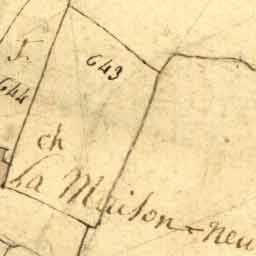 J.
643
644
ch
La Maison-neu